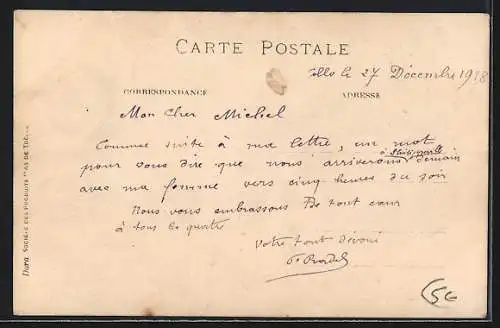 CARTE POSTALE
le 27 Décembre 1918
CORRESPONDANCE
ADRESSE
Mon Cher Michel
Comme suite à ma lettre, un mot
à Philippeville
pour vous dire que nous arriverons demain
avec ma femme vers cinq heures du soir
Nous vous embrassons de tout cœur
à tous les quatre
Votre tout dévoué
Dura. SOCIÉTÉ DES PRODUITS "AS DE TRÈFLE